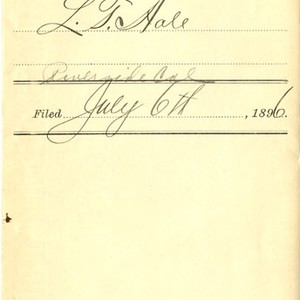 L. T. Hale
Riverside Cal
Filed July 6th, 1896.